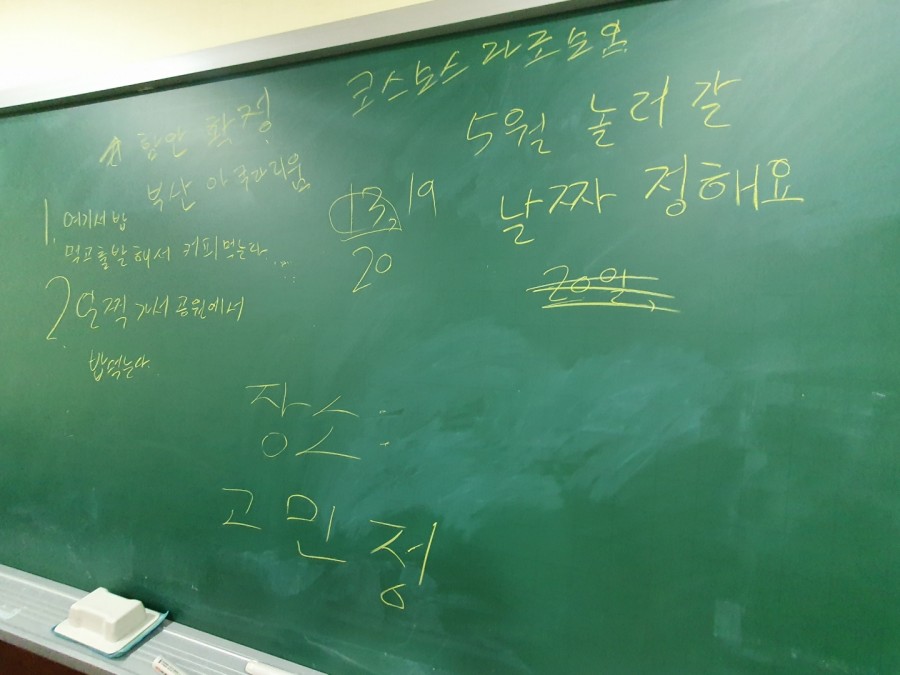 코스모스 파로모임
함안 확정
부산 아쿠아리움
1. 여기서 밥
먹고 출발해서 커피먹는다...
2. 일찍 가서 공원에서
밥먹는다.
13, 19
20
5월 놀러 갈
날짜 정해요
20일,
장소:
고민정